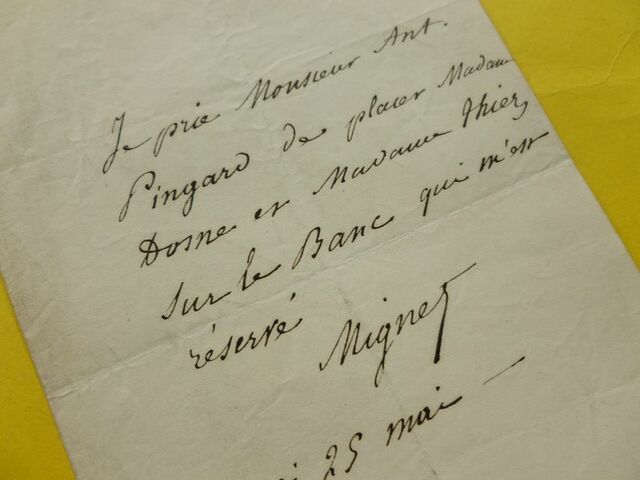 Je prie Monsieur Ant.
Pingard de placer Madame
Dosne et Madame Thiers
sur le Banc qui m'est
réservé
Mignet
25 mai